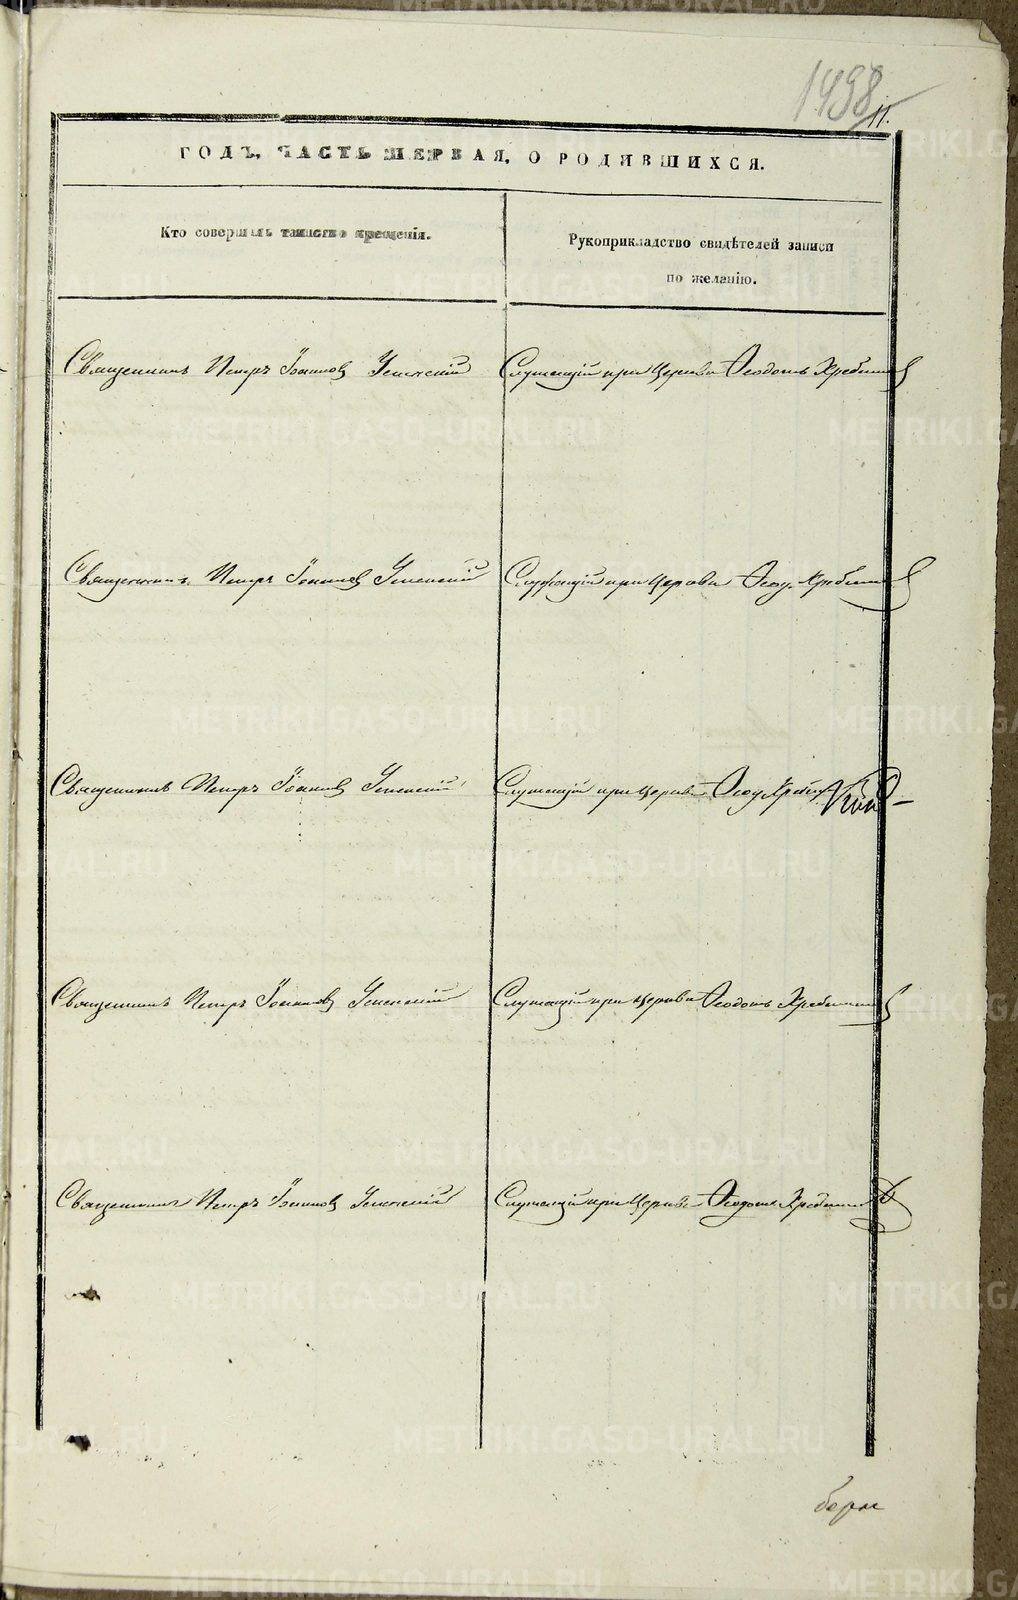 1498
11.
ГОДЪ, ЧАСТЬ ПЕРВАЯ, О РОДИВШИХСЯ.
Кто совершалъ таинство крещенія.
Рукоприкладство свидѣтелей записи
по желанію.
Священникъ Петръ Іоанновъ Успенскій
Служащій при Церкви Ѳеодотъ
Священникъ Петръ Іоанновъ Успенскій
Служащій при Церкви
Священникъ Петръ Іоанновъ Успенскій
Служащій при Церкви
Священникъ Петръ Іоанновъ Успенскій
Служащій при Церкви Ѳеодотъ
Священникъ Петръ Іоанновъ Успенскій
Служащій при Церкви Ѳеодотъ
METRIKI.GASO-URAL.RU